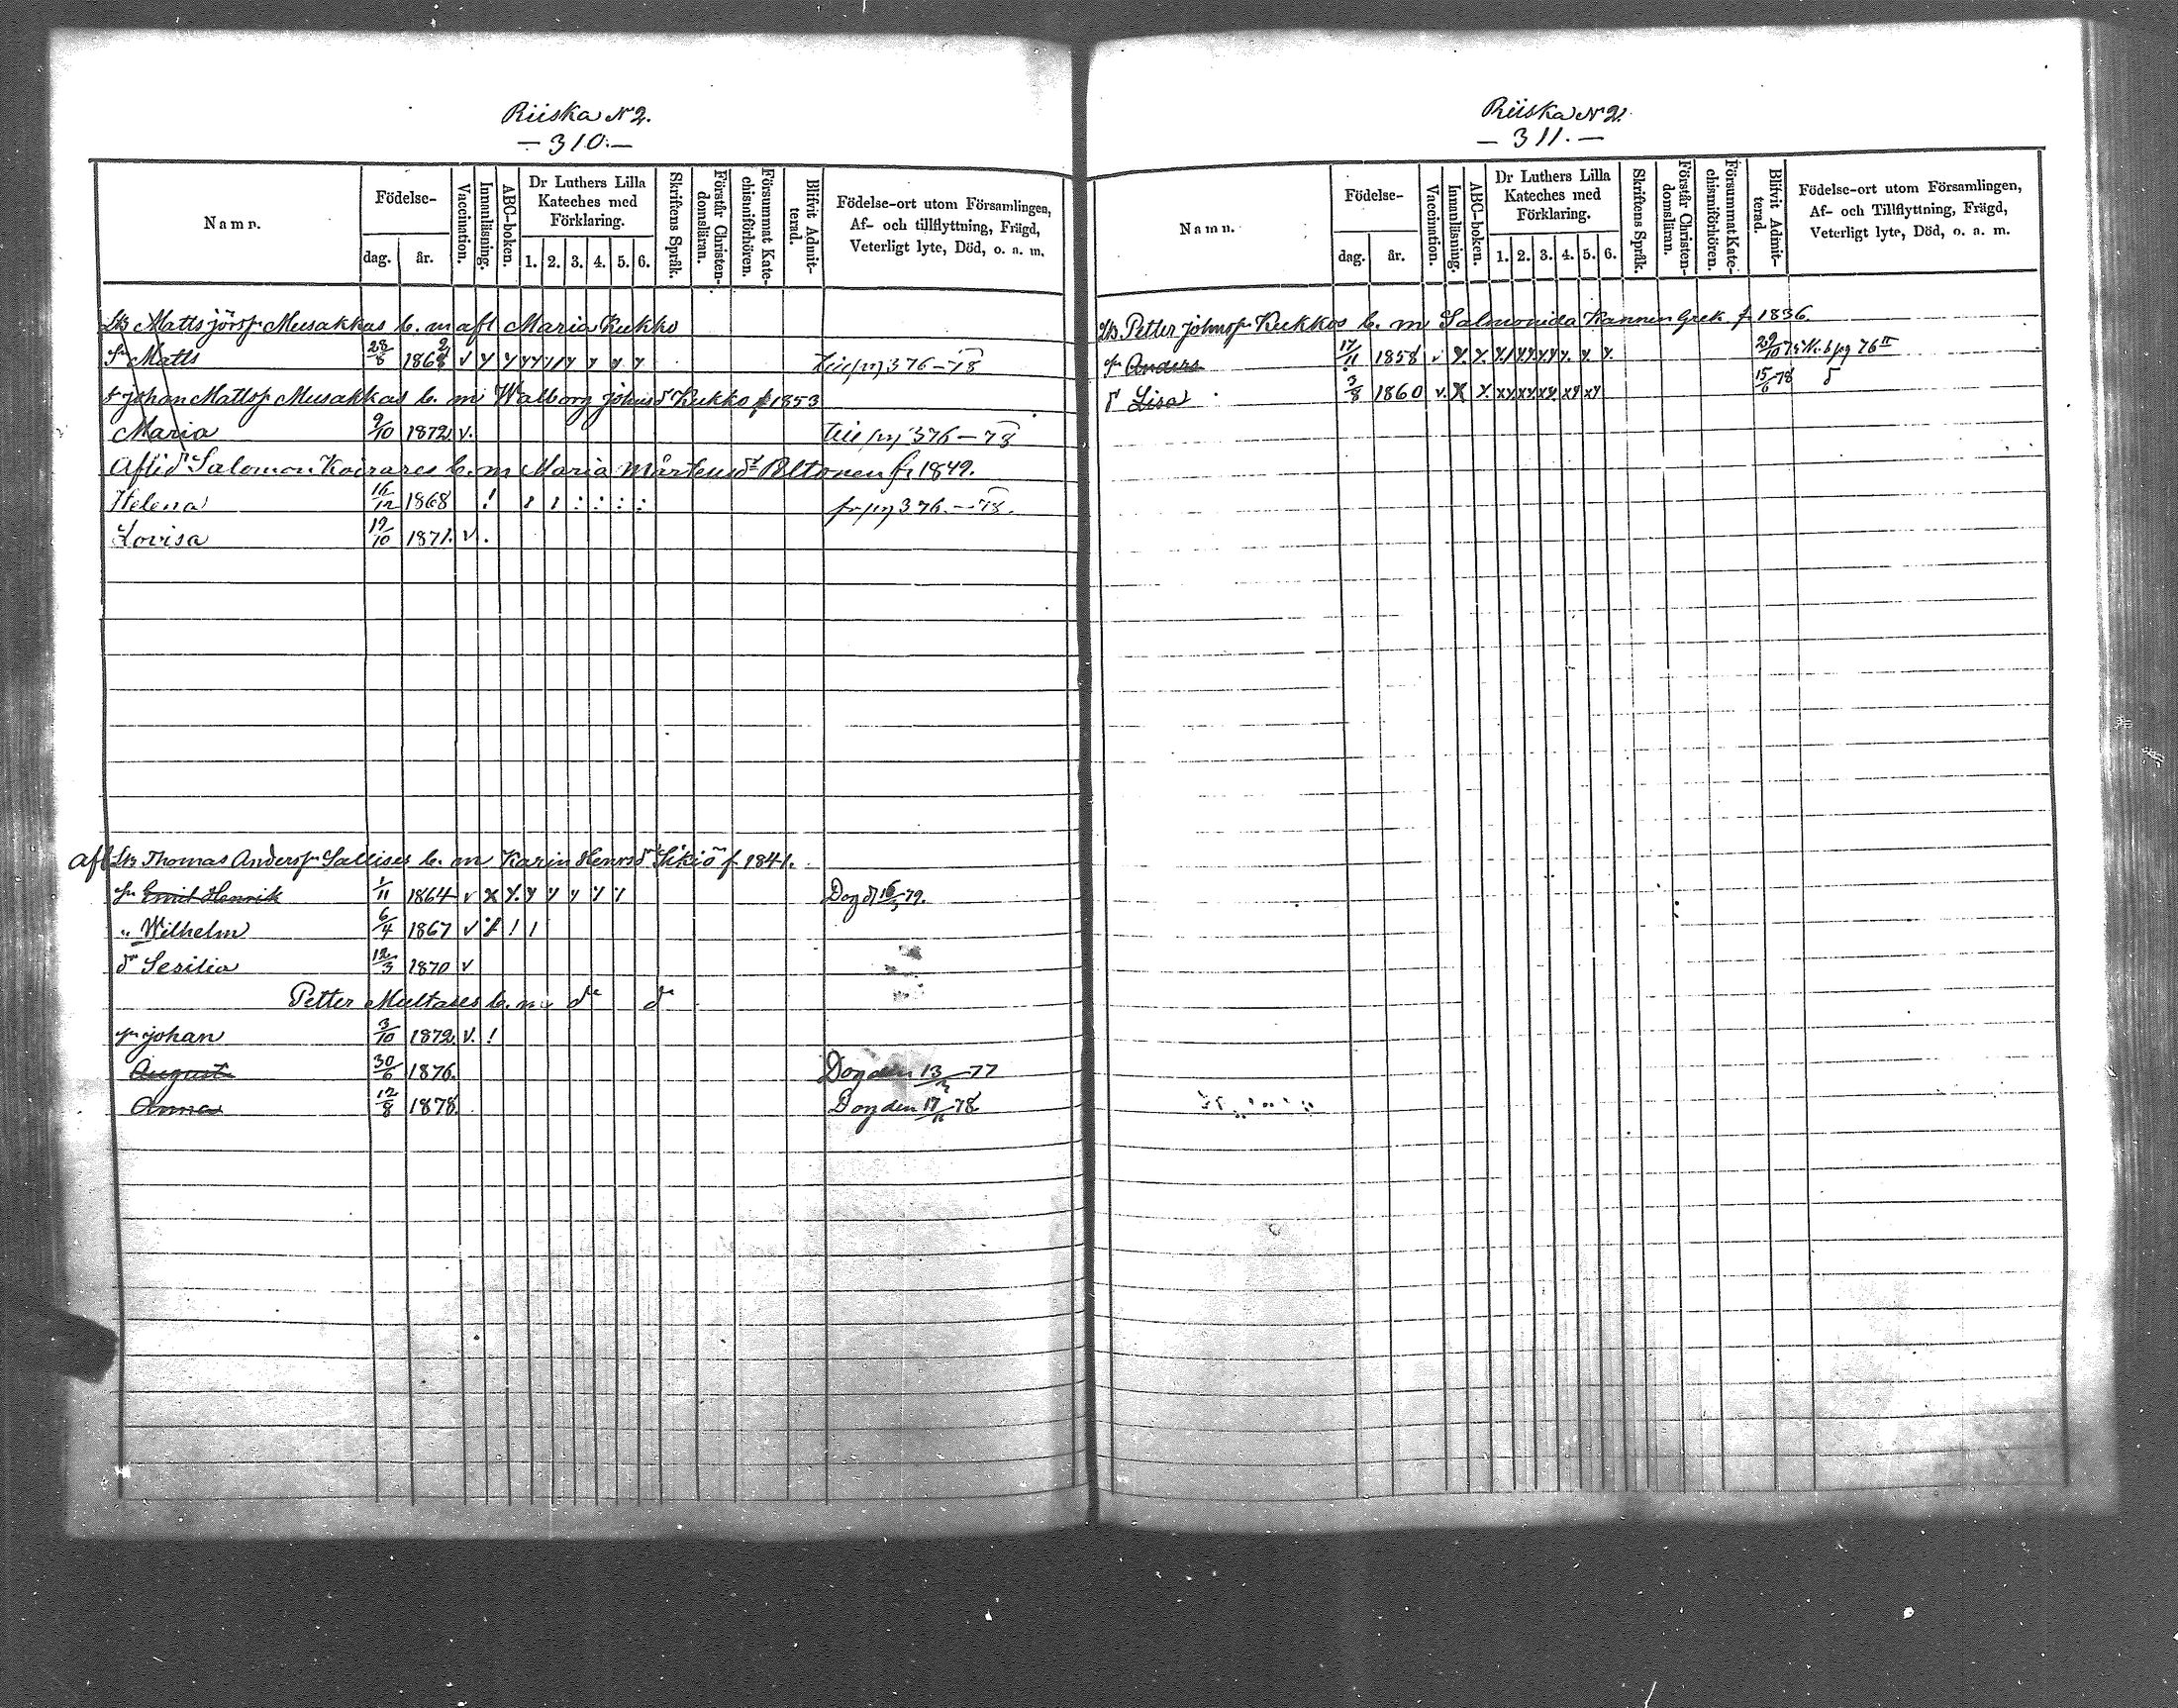 Riiska N 2.
— 310. —
Namn.
Födelse-
dag.
år.
Vaccination.
Innanläsning.
ABC-boken.
Dr Luthers Lilla Kateches med Förklaring.
1. 2. 3. 4. 5. 6.
Skriftens Språk.
Förstår Christendomsläran.
Försummat Katechismiförhören.
Blifvit Admitterad.
Födelse-ort utom Församlingen, Af- och tillflyttning, Frägd, Veterligt lyte, Död, o. a. m.
Matts Musakkas b. m afl Maria Kukko
Matts 28/8 376-78
Johan Matts Musakkas b. m Walborg Johns d Kukko f 1853
Maria 9/10 1872 v. 376-78
Aflid Salomon b. m Maria Mårtensd Peltonen f. 1849.
Helena 16/12 1868 ! 376.-78.
Lovisa 19/10 1871. v .
Afl Thomas Anders b. m Karin Henrsd f 1841.
Emil Henrik 1/11 1864 v Dog d 79.
" Wilhelm 6/4 1867 v
dr Sesilia 12/3 1870 v
Petter Multases b. m. do do
Johan 3/10 1872 v. !
August 30/6 1876. Dog den 13/ 77
Anna 12/8 1878. Dog den 17/11 78
Riiska N 2.
— 311. —
Namn.
Födelse-
dag.
år.
Vaccination.
Innanläsning.
ABC-boken.
Dr Luthers Lilla Kateches med Förklaring.
1. 2. 3. 4. 5. 6.
Skriftens Språk.
Förstår Christendomsläran.
Försummat Katechismiförhören.
Blifvit Admitterad.
Födelse-ort utom Församlingen, Af- och Tillflyttning, Frägd, Veterligt lyte, Död, o. a. m.
Petter Johns Kukkos b. m Salmonida Kannen Grek f 1836.
Anders 17/11 1858 v 29/10 76
d Lisa 3/8 1860 v. 15/6 78